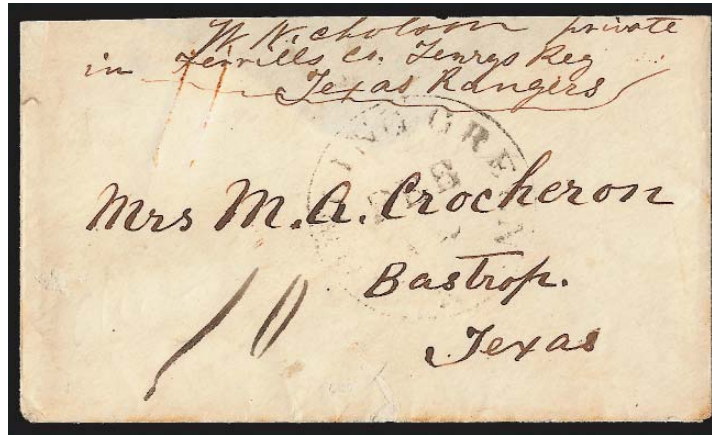 W. Nicholson private
in Ferrills Co. Terrys Reg
Texas Rangers
ING GREEN
DEC
Mrs M. A. Crocheron
Bastrop.
Texas
10